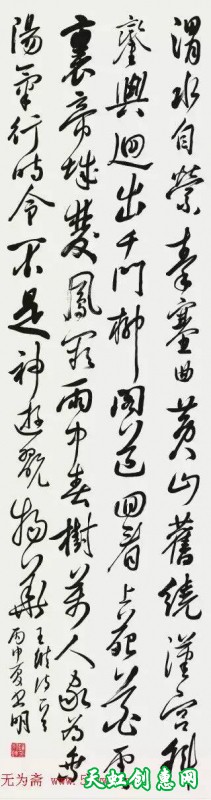 渭水自縈秦塞曲黃山舊繞漢宮斜
鑾輿迴出千門柳閣道回看上苑花雲
裏帝城雙鳳闕雨中春樹萬人家為乘
陽氣行時令不是神遊翫物華
王維詩
丙申夏 明
无为斋 www.5
天虹创意网